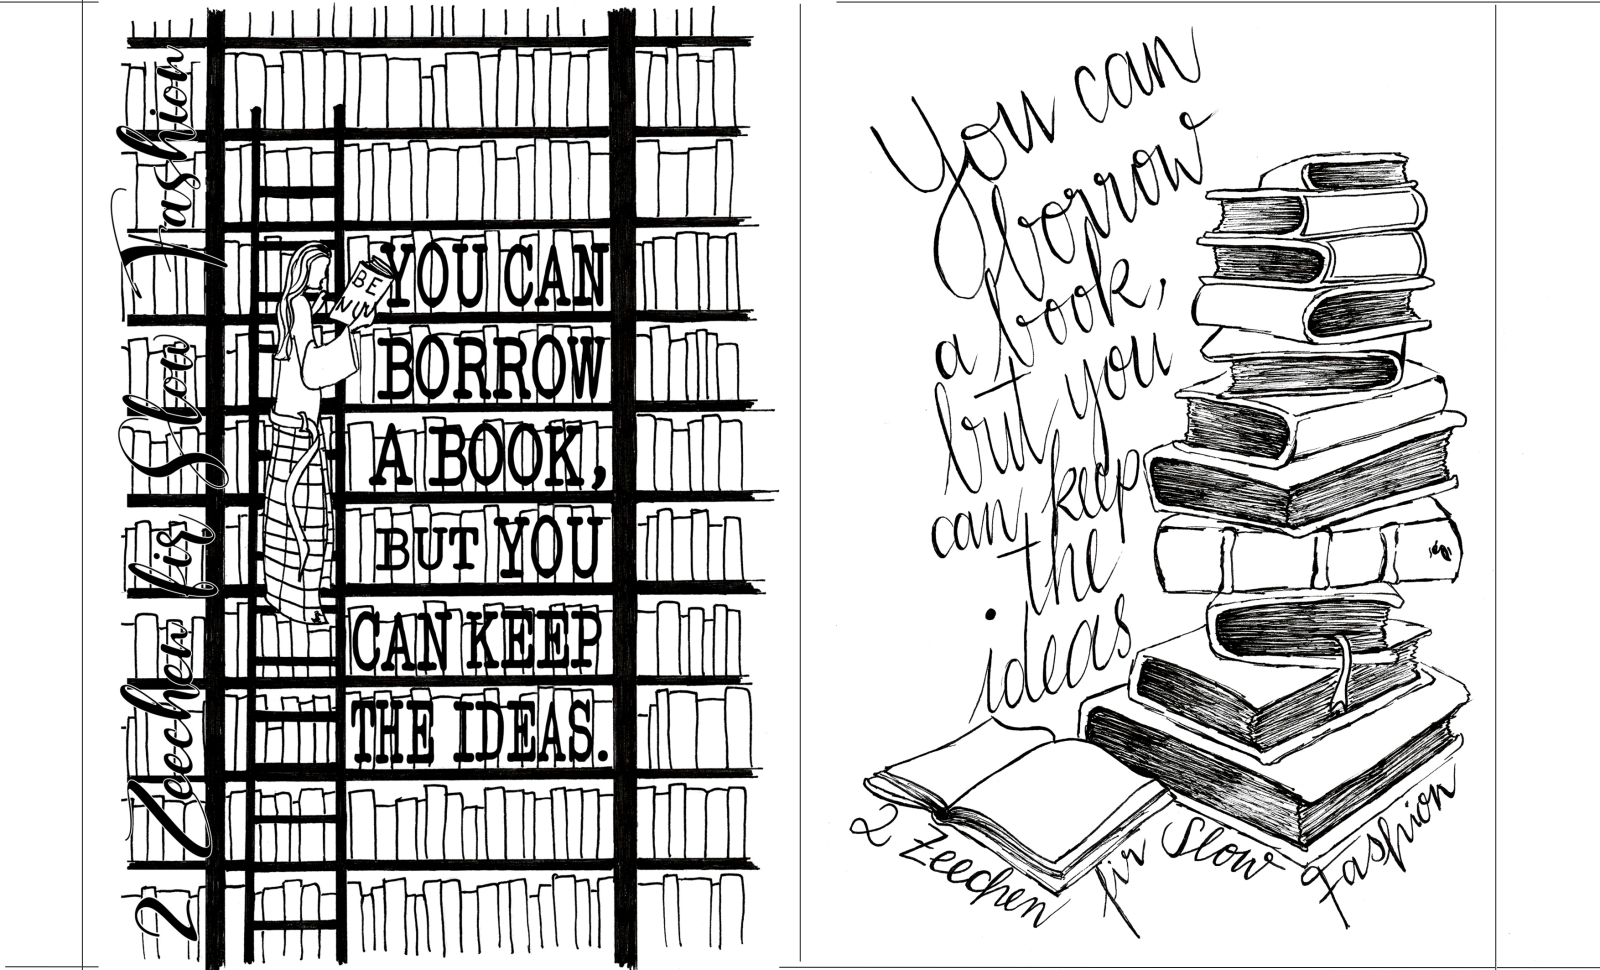 2 Zeechen fir Slow Fashion
BE
YOU CAN
BORROW
A BOOK,
BUT YOU
CAN KEEP
THE IDEAS.
You can
borrow
a book,
but you
can keep
the
ideas
2 Zeechen fir Slow Fashion